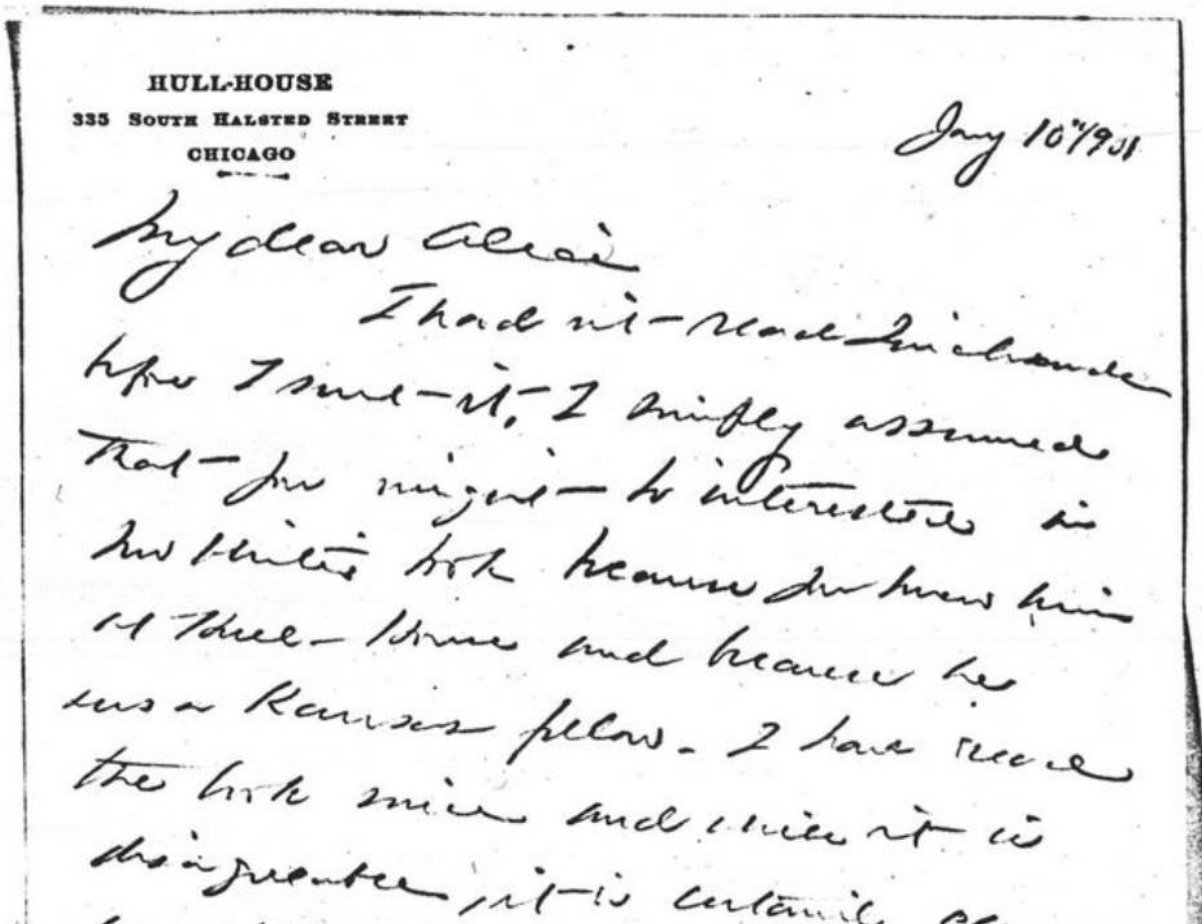 HULL-HOUSE
335 SOUTH HALSTED STREET
CHICAGO
Jany 10"/901
My dear Alice
I had not read
before I sent it, I simply assumed
that you might be interested in
book because you knew him
at Hull-House and because he
was a Kansas fellow. I have read
the book since and while it is
disagreeable, it is certainly